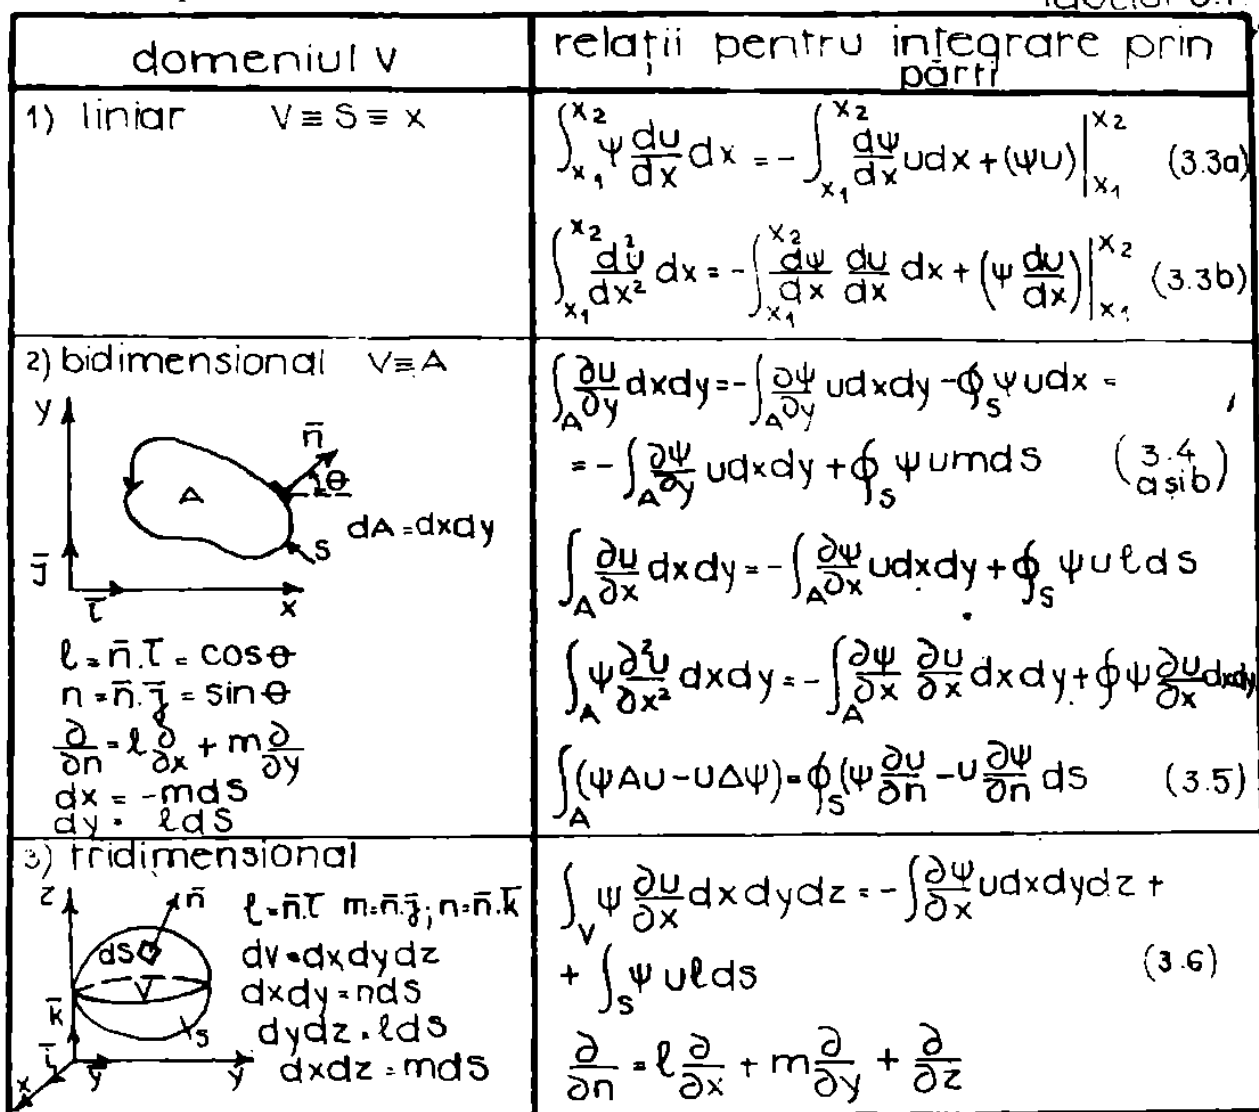 domeniul V
relații pentru integrare prin
părți
1) liniar V ≡ S ≡ x
∫_{x₁}^{x₂} ψ du/dx dx = - ∫_{x₁}^{x₂} dψ/dx u dx + (ψu)|_{x₁}^{x₂} (3.3a)
∫_{x₁}^{x₂} d²u/dx² dx = - ∫_{x₁}^{x₂} dψ/dx du/dx dx + (ψ du/dx)|_{x₁}^{x₂} (3.3b)
2) bidimensional V ≡ A
y
n̄
θ
A
dA = dxdy
S
j̄
ī
x
l = n̄.ī = cosθ
n = n̄.j̄ = sinθ
∂/∂n = l ∂/∂x + m ∂/∂y
dx = -mds
dy = lds
∫_A ∂u/∂y dxdy = - ∫_A ∂ψ/∂y udxdy - ∮_S ψudx =
= - ∫_A ∂ψ/∂y udxdy + ∮_S ψumds (3.4 a și b)
∫_A ∂u/∂x dxdy = - ∫_A ∂ψ/∂x udxdy + ∮_S ψulds
∫_A ψ ∂²u/∂x² dxdy = - ∫_A ∂ψ/∂x ∂u/∂x dxdy + ∮ψ ∂u/∂x dxdy
∫_A (ψΔu - uΔψ) = ∮_S (ψ ∂u/∂n - u ∂ψ/∂n ds (3.5)
3) tridimensional
z
n̄
dS
V
S
k̄
ī
j̄
x
y
l = n̄.ī m = n̄.j̄; n = n̄.k̄
dv = dxdydz
dxdy = nds
dydz = lds
dxdz = mds
∫_V ψ ∂u/∂x dxdydz = - ∫ ∂ψ/∂x udxdydz +
+ ∫_S ψulds (3.6)
∂/∂n = l ∂/∂x + m ∂/∂y + ∂/∂z